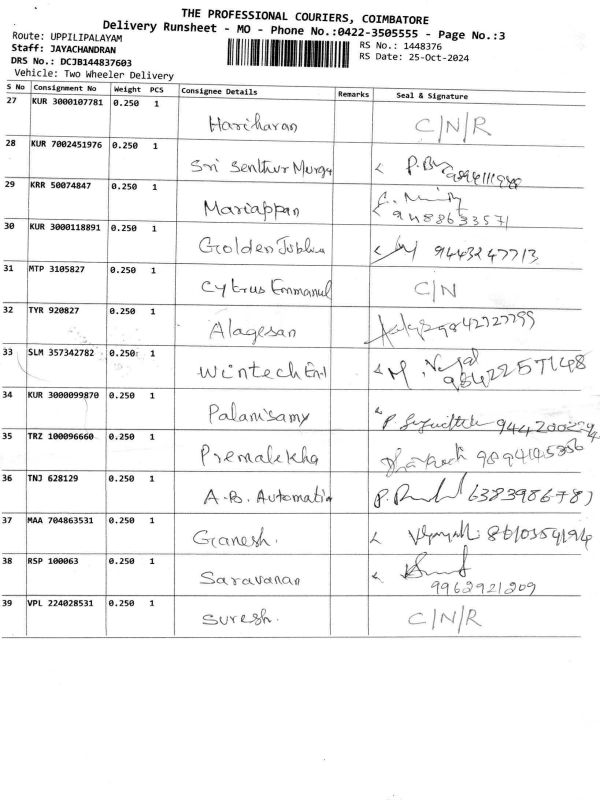 THE PROFESSIONAL COURIERS, COIMBATORE
Delivery Runsheet - MO - Phone No.:0422-3505555 - Page No.:3
Route: UPPILIPALAYAM
RS No.: 1448376
Staff: JAYACHANDRAN
RS Date: 25-Oct-2024
DRS No.: DCJB144837603
Vehicle: Two Wheeler Delivery
S No Consignment No Weight PCS Consignee Details Remarks Seal & Signature
27 KUR 3000107781 0.250 1 Hariharan C/N/R
28 KUR 7002451976 0.250 1 Sri Senthur Muruga
29 KRR 50074847 0.250 1 Mariappan
9488633571
30 KUR 3000118891 0.250 1 Golden Jubliee 9443247713
31 MTP 3105827 0.250 1 Cytrus Emmanul C/N
32 TYR 920827 0.250 1 Alagesan 9842727799
33 SLM 357342782 0.250 1 Wintech En1
9842257148
34 KUR 3000099870 0.250 1 Palanisamy
35 TRZ 100096660 0.250 1 Premalekha
36 TNJ 628129 0.250 1 A.B. Automatio
37 MAA 704863531 0.250 1 Ganesh. 8610354194
38 RSP 100063 0.250 1 Saravanan
9962921209
39 VPL 224028531 0.250 1 Suresh. C/N/R